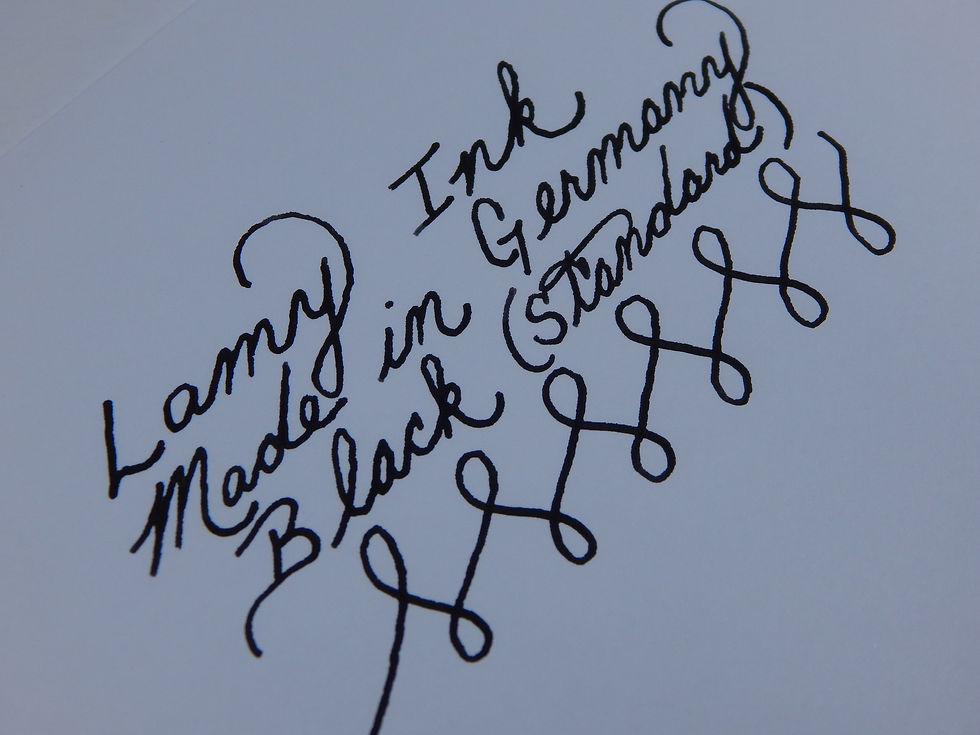 Lamy Ink
Made in Germany
Black (Standard)